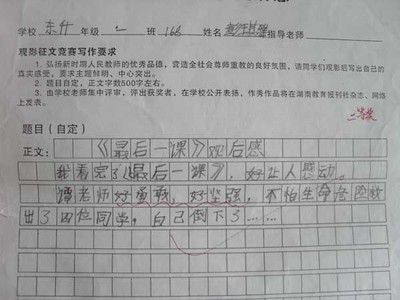 学校 东升 年级 二 班 168 姓名 指导老师
观影征文竞赛写作要求
1. 弘扬新时期人民教师的优秀品德，营造全社会尊师重教的良好氛围，请同学们观影后写出自己的
真实感受，要求主题鲜明、中心突出。
2. 题目自定，正文字数500字左右。
3. 由学校老师集中评审，评出获奖者，在学校公开表扬，优秀作品将在湖南教育报刊社杂志、网络
上发表。
二等奖
题目（自定）
正文：《最后一课》观后感
我看完了《最后一课》，好让人感动。
谭老师好勇敢，好坚强，不怕生命危险救
出了四位同学，自己倒下了……